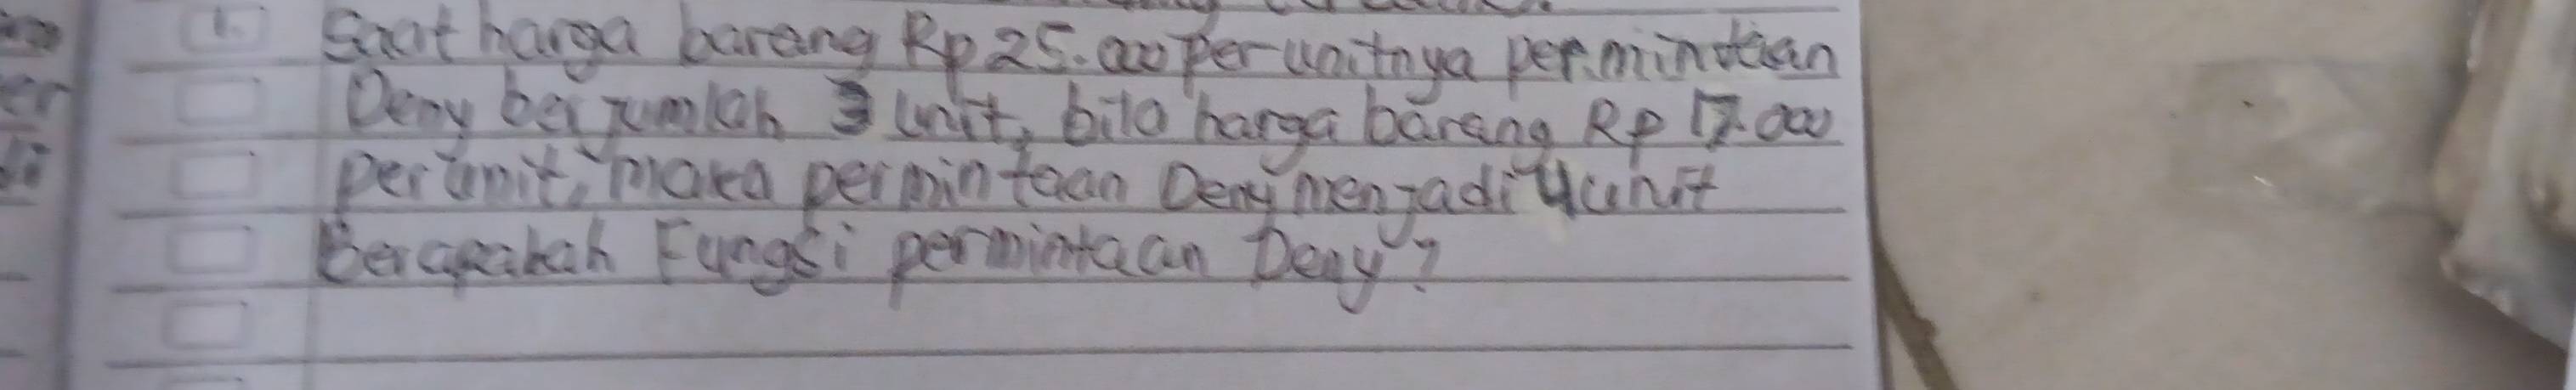 1. Saat harga barang Rp 25.000 per unitnya permintaan
Deny berjumlah 3 unit, bila harga barang Rp 17.000
per unit, maka permintaan Deny menjadi 4 unit
Berapakah Fungsi permintaan Deny?